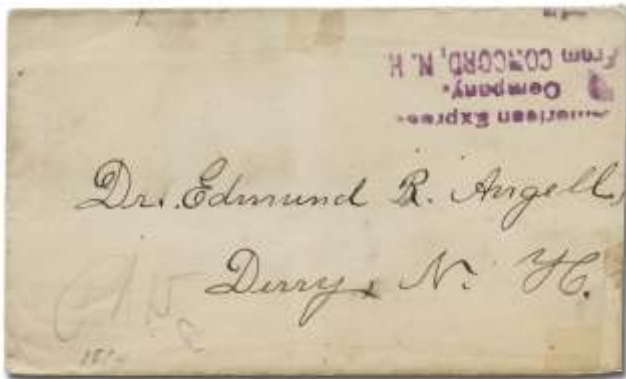 American Express
Company.
From CONCORD, N. H
Dr. Edmund R. Angell,
Derry, N. H.